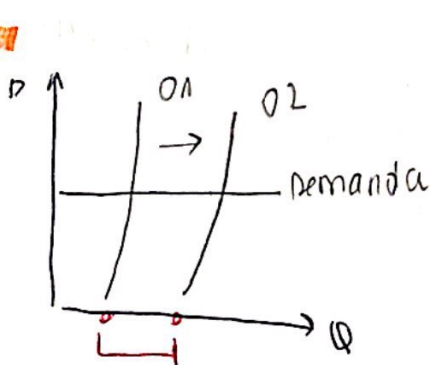 P
O1
O2
Demanda
Q